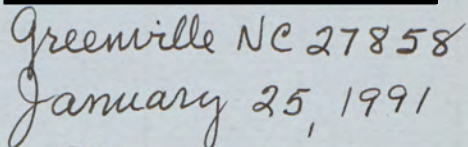 Greenville NC 27858
January 25, 1991